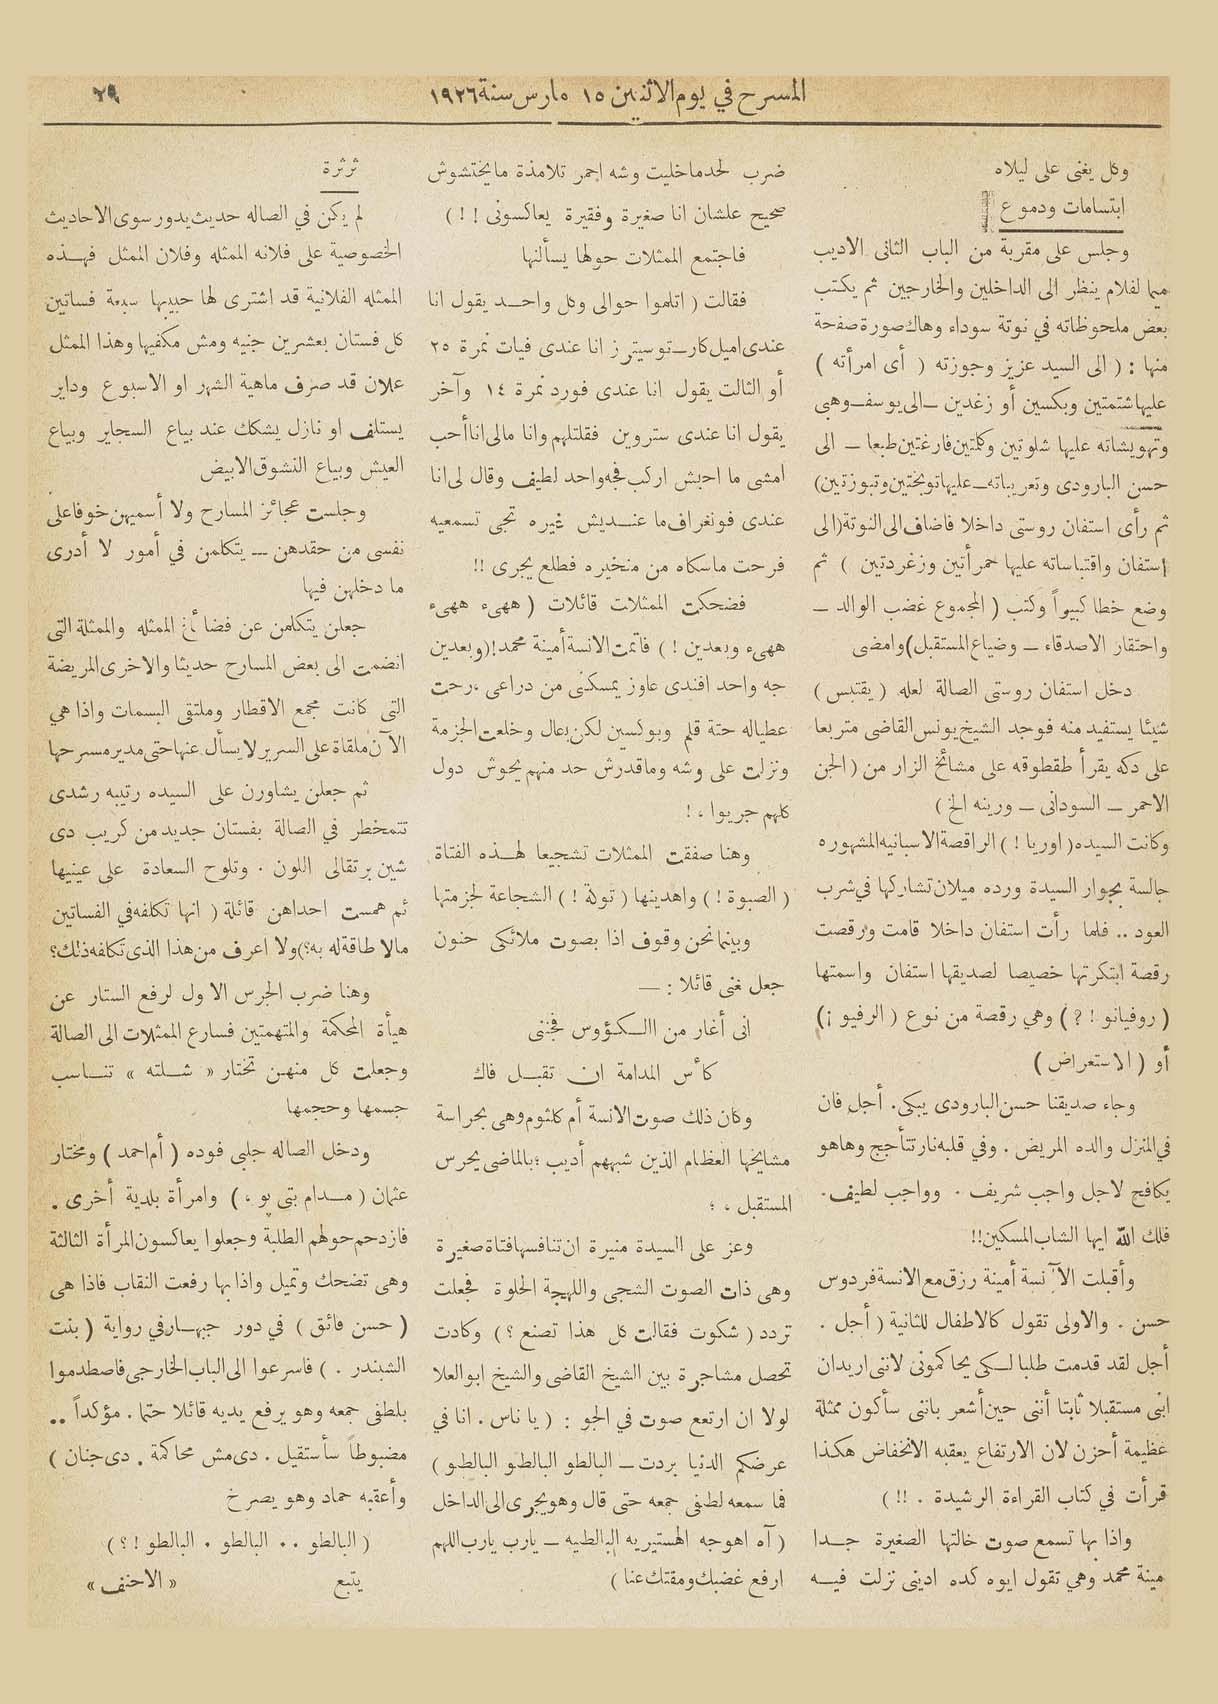 ٢٩
المسرح في يوم الاثنين ١٥ مارس سنة ١٩٢٦
وكل يغنى على ليلاه
ابتسامات ودموع
وجلس على مقربة من الباب الثانى الاديب
ميما لفلام ينظر الى الداخلين والخارجين ثم يكتب
بعض ملحوظاته في نوتة سوداء وهاك صورة صفحة
منها : ( الى السيد عزيز وجوزته ( أى امرأته )
عليها شتمتين وبكسين أو زغدين — الى يوسف وهبى
وتهويشاته عليها شلوتين وكلمتين فارغتين طبعا — الى
حسن البارودى وتعريباته — عليها توبختين وتبوزتين)
ثم رأى استفان روستى داخلا فاضاف الى النوتة (الى
استفان واقتباساته عليها حمرأتين وزغردتين ) ثم
وضع خطا كبيراً وكتب ( المجموع غضب الوالد —
واحتقار الاصدقاء — وضياع المستقبل) وامضى
دخل استفان روستى الصالة لعله ( يقتبس )
شيئا يستفيد منه فوجد الشيخ يونس القاضى متربعا
على دكه يقرأ طقطوقه على مشائخ الزار من ( الجن
الاحمر — السودانى — ورينه الخ )
وكانت السيده ( اوريا ! ) الراقصة الاسبانيه المشهوره
جالسة بجوار السيدة ورده ميلان تشاركها في شرب
العود .. فلما رأت استفان داخلا قامت ورقصت
رقصة ابتكرتها خصيصا لصديقها استفان واسمتها
( روفيانو ! ؟ ) وهي رقصة من نوع ( الرفيو ¡)
أو ( الاستعراض )
وجاء صديقنا حسن البارودى يبكى . أجل فان
في المنزل والده المريض . وفي قلبه نار تتأجج وهاهو
يكافح لاجل واجب شريف . وواجب لطيف .
فلك الله ايها الشاب المسكين !!
وأقبلت الآنسة أمينة رزق مع الانسة فردوس
حسن . والاولى تقول كالاطفال للثانية ( أجل .
أجل لقد قدمت طلبا لكى يحاكمونى لاننى اريد ان
ابنى مستقبلا ثابتا أننى حين أشعر باننى سأكون ممثلة
عظيمة أحزن لان الارتفاع يعقبه الانخفاض هكذا
قرأت في كتاب القراءة الرشيدة . !! )
واذا بها تسمع صوت خالتها الصغيرة جدا
مينة محمد وهي تقول ايوه كده ادينى نزلت فيه
ضرب لحد ما خليت وشه احمر تلامذة ما يختشوش
صحيح علشان انا صغيرة وفقيرة يعاكسونى ! ! )
فاجتمع الممثلات حولها يسألنها
فقالت ( اتلموا حوالى وكل واحد يقول انا
عندى اميل كار — توسيترز انا عندى فيات نمرة ٢٥
أو الثالت يقول انا عندى فورد نمرة ١٤ وآخر
يقول انا عندى ستروين فقلتلهم وانا مالى انا أحب
أمشى ما احبش اركب فجه واحد لطيف وقال لى انا
عندى فونغراف ما عنديش غيره تجى تسمعيه
فرحت ماسكاه من منخيره فطلع يجرى !!
فضحكت الممثلات قائلات ( ههىء ههىء
ههىء وبعدين ! ) فاتمت الانسة أمينة محمد ! (وبعدين
جه واحد افندى عاوز يمسكنى من دراعى ، رحت
عطياله حتة قلم وبوكسين لكن بعال وخلعت الجزمة
ونزلت على وشه وماقدرش حد منهم يحوش دول
كلهم جريوا ، !
وهنا صفقت الممثلات تشجيعا لهذه الفتاة
( الصبوة ! ) واهدينها ( تونة ! ) الشجاعة لجزمتها
وبينما نحن وقوف اذا بصوت ملائكى حنون
جعل غنى قائلا : —
انى أغار من االكؤوس فجنبى
كأس المدامة ان تقبل فاك
وكان ذلك صوت الانسة أم كلثوم وهى بحراسة
مشايخها العظام الذين شبههم أديب ؛ بالماضى يحرس
المستقبل ، ؛
وعز على السيدة منيرة ان تنافسها فتاة صغيرة
وهى ذات الصوت الشجى واللهجة الحلوة فجعلت
تردد ( شكوت فقالت كل هذا تصنع ؟ ) وكادت
تحصل مشاجرة بين الشيخ القاضى والشيخ ابو العلا
لولا ان ارتعع صوت في الجو : ( يا ناس . انا في
عرضكم الدنيا بردت — البالطو البالطو البالطو )
فما سمعه لطفى جمعه حتى قال وهو يجرى الى الداخل
( آه اهوجه الهستيريه البالطيه — يارب يارب اللهم
ارفع غضبك ومقتك عنا )
ثرثرة
لم يكن في الصاله حديث يدور سوى الاحاديث
الخصوصية على فلانه الممثله وفلان الممثل فهذه
الممثله الفلانية قد اشترى لها حبيبها سبعة فساتين
كل فستان بعشرين جنيه ومش مكفيها وهذا الممثل
علان قد صرف ماهية الشهر او الاسبوع وداير
يستلف او نازل يشكك عند بياع السجاير وبياع
العيش وبياع النشوق الابيض
وجلست عجائز المسارح ولا أسميهن خوفا على
نفسى من حقدهن — يتكلمن في أمور لا أدرى
ما دخلهن فيها
جعلن يتكلمن عن فضائح الممثله والممثلة التى
انضمت الى بعض المسارح حديثا والاخرى المريضة
التى كانت مجمع الاقطار وملتقى البسمات واذا هي
الآن ملقاة على السرير لا يسأل عنها حتى مدير مسرحها
ثم جعلن يشاورن على السيده رتيبه رشدى
تتمخطر في الصالة بفستان جديد من كريب دى
شين برتقالى اللون . وتلوح السعادة على عينيها
ثم همست احداهن قائلة ( انها تكلفه في الفساتين
مالا طاقة له به ؟) ولا اعرف من هذا الذى تكلفه ذلك ؟
وهنا ضرب الجرس الاول لرفع الستار عن
هيأة المحكمة والمتهمتين فسارع الممثلات الى الصالة
وجعلت كل منهن تختار « شلته » تناسب
جسمها وحجمها
ودخل الصاله جلبى فوده ( أم احمد ) ومختار
عثمان ( مدام بتى بو ، ) وامرأة بلدية أخرى .
فازدحم حولهم الطلبة وجعلوا يعاكسون المرأة الثالثة
وهى تضحك وتميل واذا بها رفعت النقاب فاذا هى
( حسن فائق ) في دور جبهار في رواية ( بنت
الشبندر . ) فاسرعوا الى الباب الخارجى فاصطدموا
بلطفى جمعه وهو يرفع يديه قائلا حتما . مؤكداً ..
مضبوطاً سأستقيل . دى مش محاكمة . دى جنان )
وأعقبه حماد وهو يصرخ
( البالطو .. البالطو . البالطو ! ؟ )
يتبع « الاحنف »